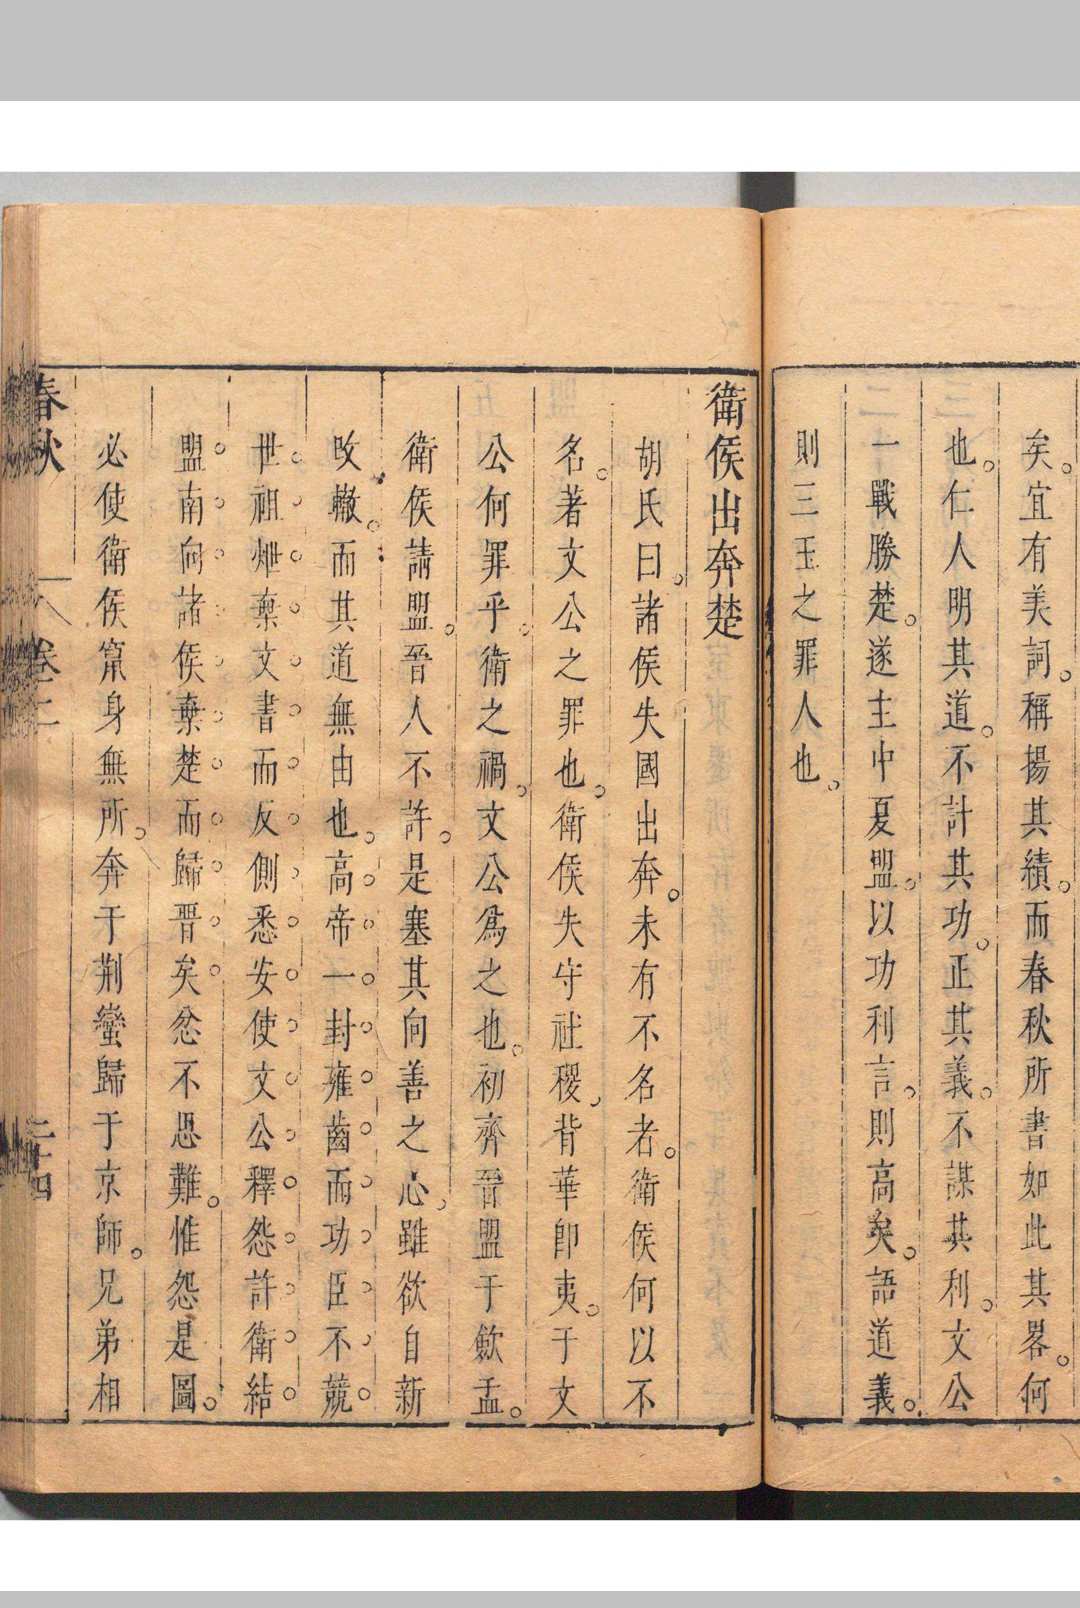 矣。宜有美詞。稱揚其績。而春秋所書如此其畧。何
也。仁人明其道。不計其功。正其義。不謀其利。文公
一戰勝楚。遂主中夏盟。以功利言。則高矣。語道義。
則三王之罪人也。
衛侯出奔楚
胡氏曰。諸侯失國出奔。未有不名者。衛侯何以不
名。著文公之罪也。衛侯失守社稷。背華即夷。于文
公何罪乎。衛之禍。文公爲之也。初齊晉盟于歛盂。
衛侯請盟。晉人不許。是塞其向善之心。雖欲自新
改轍。而其道無由也。高帝一封雍齒而功臣不競。
世祖燼棄文書而反側悉安使文公釋怨許衛結
盟南向諸侯棄楚而歸晉矣忿不思難。惟怨是圖。
必使衛侯竄身無所。奔于荆蠻歸于京師。兄弟相
春秋 卷二 二十四